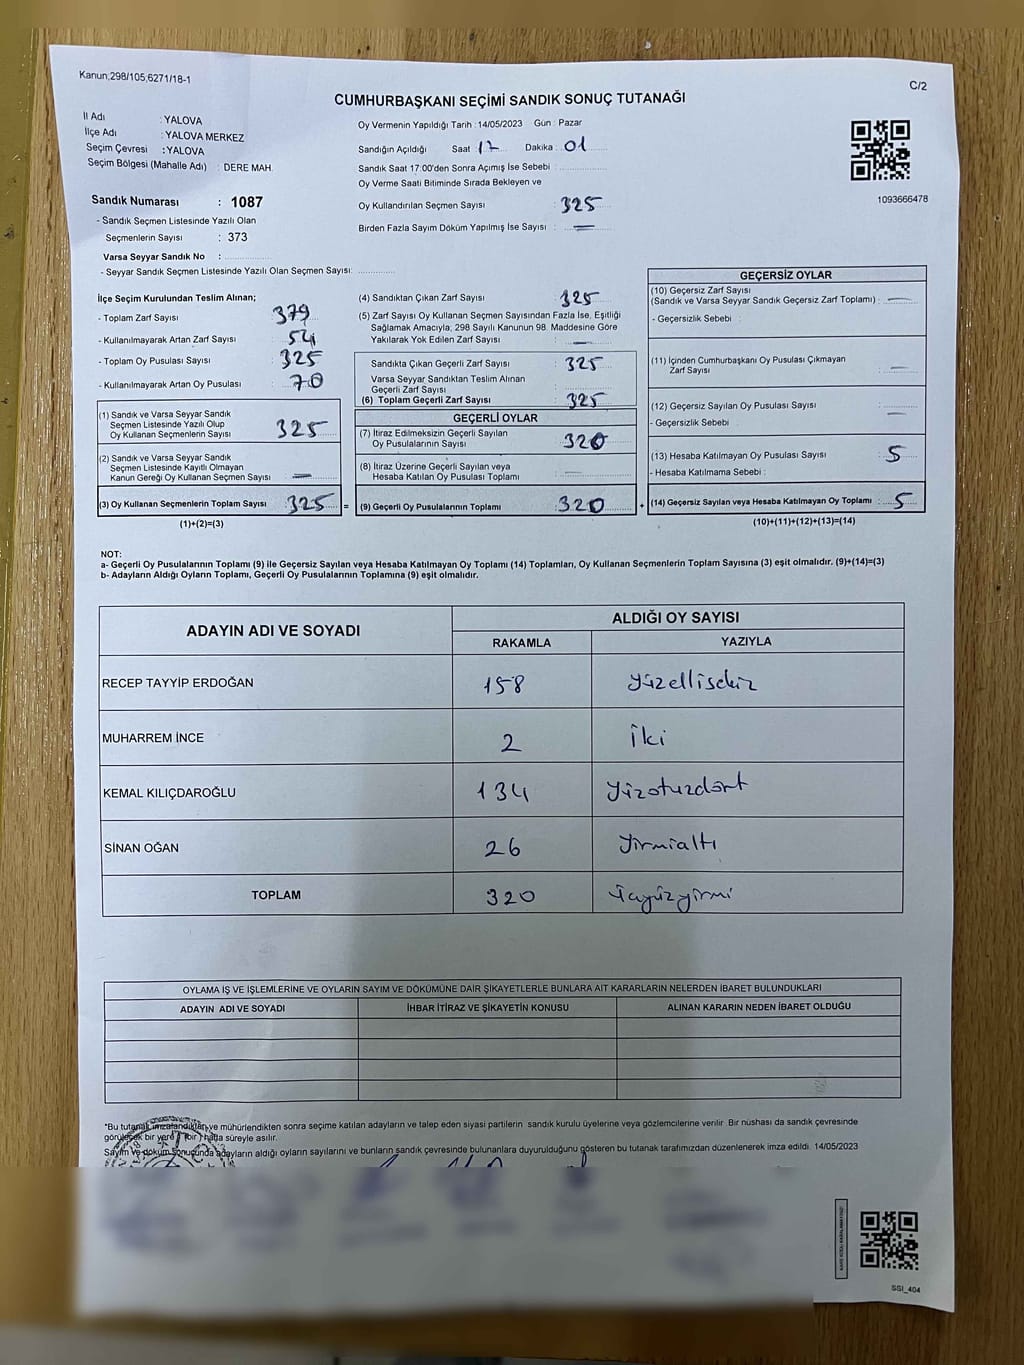 Kanun;298/105,6271/18-1
C/2
CUMHURBAŞKANI SEÇİMİ SANDIK SONUÇ TUTANAĞI
İl Adı : YALOVA
İlçe Adı : YALOVA MERKEZ
Seçim Çevresi : YALOVA
Seçim Bölgesi (Mahalle Adı) : DERE MAH.
Sandık Numarası : 1087
- Sandık Seçmen Listesinde Yazılı Olan
Seçmenlerin Sayısı : 373
Varsa Seyyar Sandık No :
- Seyyar Sandık Seçmen Listesinde Yazılı Olan Seçmen Sayısı:
Oy Vermenin Yapıldığı Tarih : 14/05/2023 Gün : Pazar
Sandığın Açıldığı Saat 17 Dakika : 01
Sandık Saat 17:00'den Sonra Açımış İse Sebebi :
Oy Verme Saati Bitiminde Sırada Bekleyen ve
Oy Kullandırılan Seçmen Sayısı : 325
Birden Fazla Sayım Döküm Yapılmış İse Sayısı : —
1093666478
İlçe Seçim Kurulundan Teslim Alınan;
- Toplam Zarf Sayısı : 379
- Kullanılmayarak Artan Zarf Sayısı : 54
- Toplam Oy Pusulası Sayısı : 325
- Kullanılmayarak Artan Oy Pusulası : 70
(1) Sandık ve Varsa Seyyar Sandık
Seçmen Listesinde Yazılı Olup
Oy Kullanan Seçmenlerin Sayısı : 325
(2) Sandık ve Varsa Seyyar Sandık
Seçmen Listesinde Kayıtlı Olmayan
Kanun Gereği Oy Kullanan Seçmen Sayısı : —
(3) Oy Kullanan Seçmenlerin Toplam Sayısı : 325 =
(1)+(2)=(3)
(4) Sandıktan Çıkan Zarf Sayısı : 325
(5) Zarf Sayısı Oy Kullanan Seçmen Sayısından Fazla İse, Eşitliği
Sağlamak Amacıyla; 298 Sayılı Kanunun 98. Maddesine Göre
Yakılarak Yok Edilen Zarf Sayısı : —
Sandıkta Çıkan Geçerli Zarf Sayısı : 325
Varsa Seyyar Sandıktan Teslim Alınan
Geçerli Zarf Sayısı :
(6) Toplam Geçerli Zarf Sayısı : 325
GEÇERLİ OYLAR
(7) İtiraz Edilmeksizin Geçerli Sayılan
Oy Pusulalarının Sayısı : 320
(8) İtiraz Üzerine Geçerli Sayılan veya
Hesaba Katılan Oy Pusulası Toplamı : —
(9) Geçerli Oy Pusulalarının Toplamı : 320 +
GEÇERSİZ OYLAR
(10) Geçersiz Zarf Sayısı
(Sandık ve Varsa Seyyar Sandık Geçersiz Zarf Toplamı) : —
- Geçersizlik Sebebi :
(11) İçinden Cumhurbaşkanı Oy Pusulası Çıkmayan
Zarf Sayısı : —
(12) Geçersiz Sayılan Oy Pusulası Sayısı : —
- Geçersizlik Sebebi :
(13) Hesaba Katılmayan Oy Pusulası Sayısı : 5
- Hesaba Katılmama Sebebi :
(14) Geçersiz Sayılan veya Hesaba Katılmayan Oy Toplamı : 5
(10)+(11)+(12)+(13)=(14)
NOT:
a- Geçerli Oy Pusulalarının Toplamı (9) ile Geçersiz Sayılan veya Hesaba Katılmayan Oy Toplamı (14) Toplamları, Oy Kullanan Seçmenlerin Toplam Sayısına (3) eşit olmalıdır. (9)+(14)=(3)
b- Adayların Aldığı Oyların Toplamı, Geçerli Oy Pusulalarının Toplamına (9) eşit olmalıdır.
ADAYIN ADI VE SOYADI ALDIĞI OY SAYISI
RAKAMLA YAZIYLA
RECEP TAYYİP ERDOĞAN 158 Yüzellisekiz
MUHARREM İNCE 2 İki
KEMAL KILIÇDAROĞLU 134 Yüzotuzdört
SİNAN OĞAN 26 Yirmialtı
TOPLAM 320 üçyüzyirmi
OYLAMA İŞ VE İŞLEMLERİNE VE OYLARIN SAYIM VE DÖKÜMÜNE DAİR ŞİKAYETLERLE BUNLARA AİT KARARLARIN NELERDEN İBARET BULUNDUKLARI
ADAYIN ADI VE SOYADI İHBAR İTİRAZ VE ŞİKAYETİN KONUSU ALINAN KARARIN NEDEN İBARET OLDUĞU
*Bu tutanak imzalandıktan ve mühürlendikten sonra seçime katılan adayların ve talep eden siyasi partilerin sandık kurulu üyelerine veya gözlemcilerine verilir. Bir nüshası da sandık çevresinde
görülecek bir yere 1 (bir) hafta süreyle asılır.
Sayım ve döküm sonucunda adayların aldığı oyların sayılarını ve bunların sandık çevresinde bulunanlara duyurulduğunu gösteren bu tutanak tarafımızdan düzenlenerek imza edildi. 14/05/2023
SSI_404